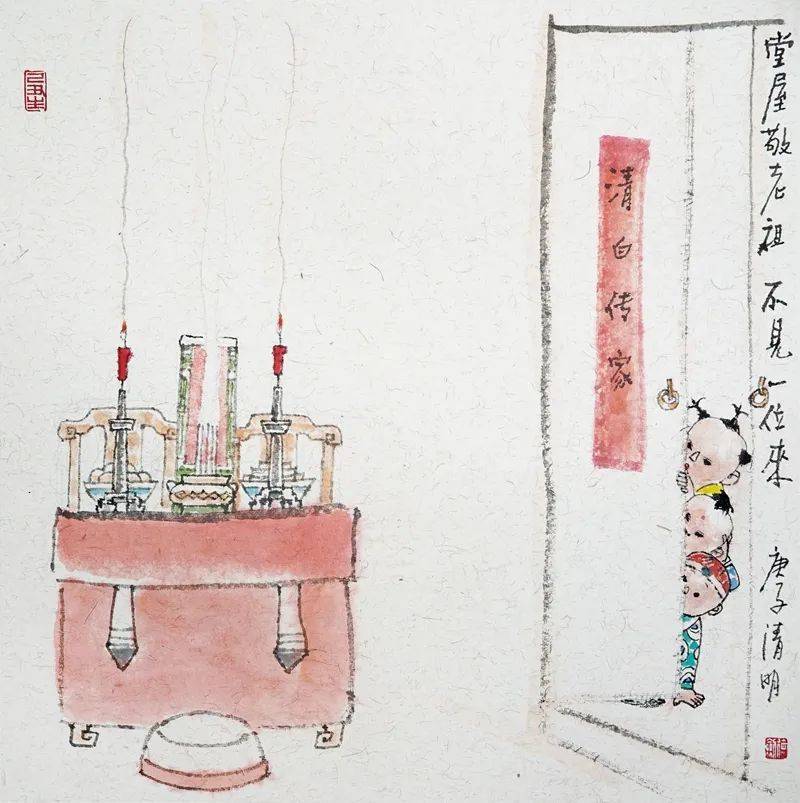 堂屋敬老祖 不見一位來
庚子清明
清白传家